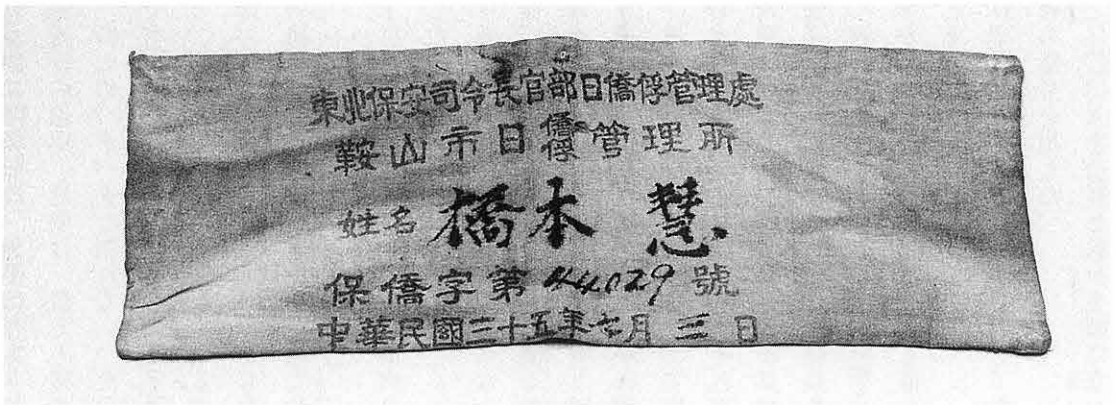 東北保安司令長官部日僑俘管理處
鞍山市日僑俘管理所
姓名 橋本 慧
保僑字第44029號
中華民國三十五年七月三日